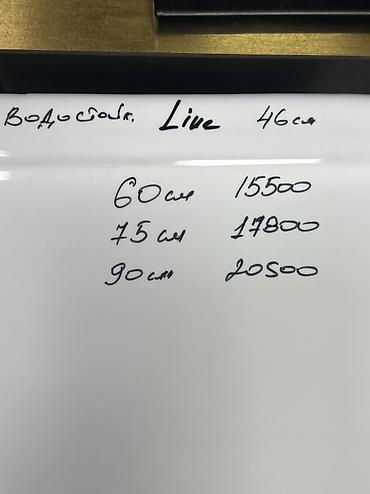 Водостойк. Line 46см
60см 15500
75см 17800
90см 20500